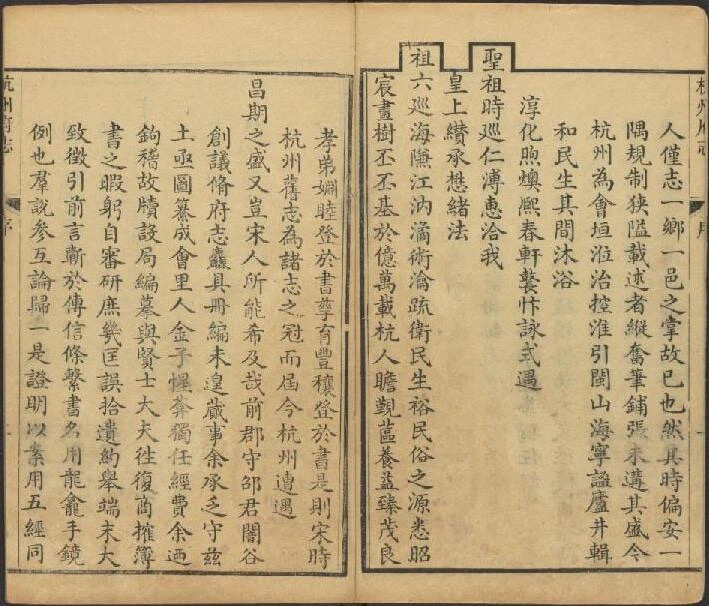 杭州府志
序
人僅志一鄉一邑之掌故已也然其時偏安一
隅規制狹隘載述者縱奮筆鋪張未遘其盛今
杭州為會垣涖治控淮引閩山海寧謐廬井輯
和民生其間沐浴
淳化煦燠熈春軒鼚忭詠式遇
聖祖時巡仁溥惠洽我
皇上纘承懋緒法
祖六巡海隒江汭潏術瀹疏衛民生裕民俗之源悉昭
宸畫樹丕丕基於億萬載杭人瞻覲蕰養益臻茂良
孝弟婣睦登於書孳育豐穰登於書是則宋時
杭州舊志為諸志之冠而屆今杭州遭遇
昌期之盛又豈宋人所能希及哉前郡守邵君闇谷
創議脩府志麤具冊編未遑蕆事余承乏守兹
土亟圖纂成會里人金子惺葊獨任經費余迺
鉤稽故牘設局編摹與賢士大夫徃復商搉簿
書之暇躬自審研庶幾匡誤拾遺約舉端末大
致徵引前言斷於傳信條繫書名用龍龕手鏡
例也羣說參互論歸一是證明以案用五經同
杭州府志
序
二